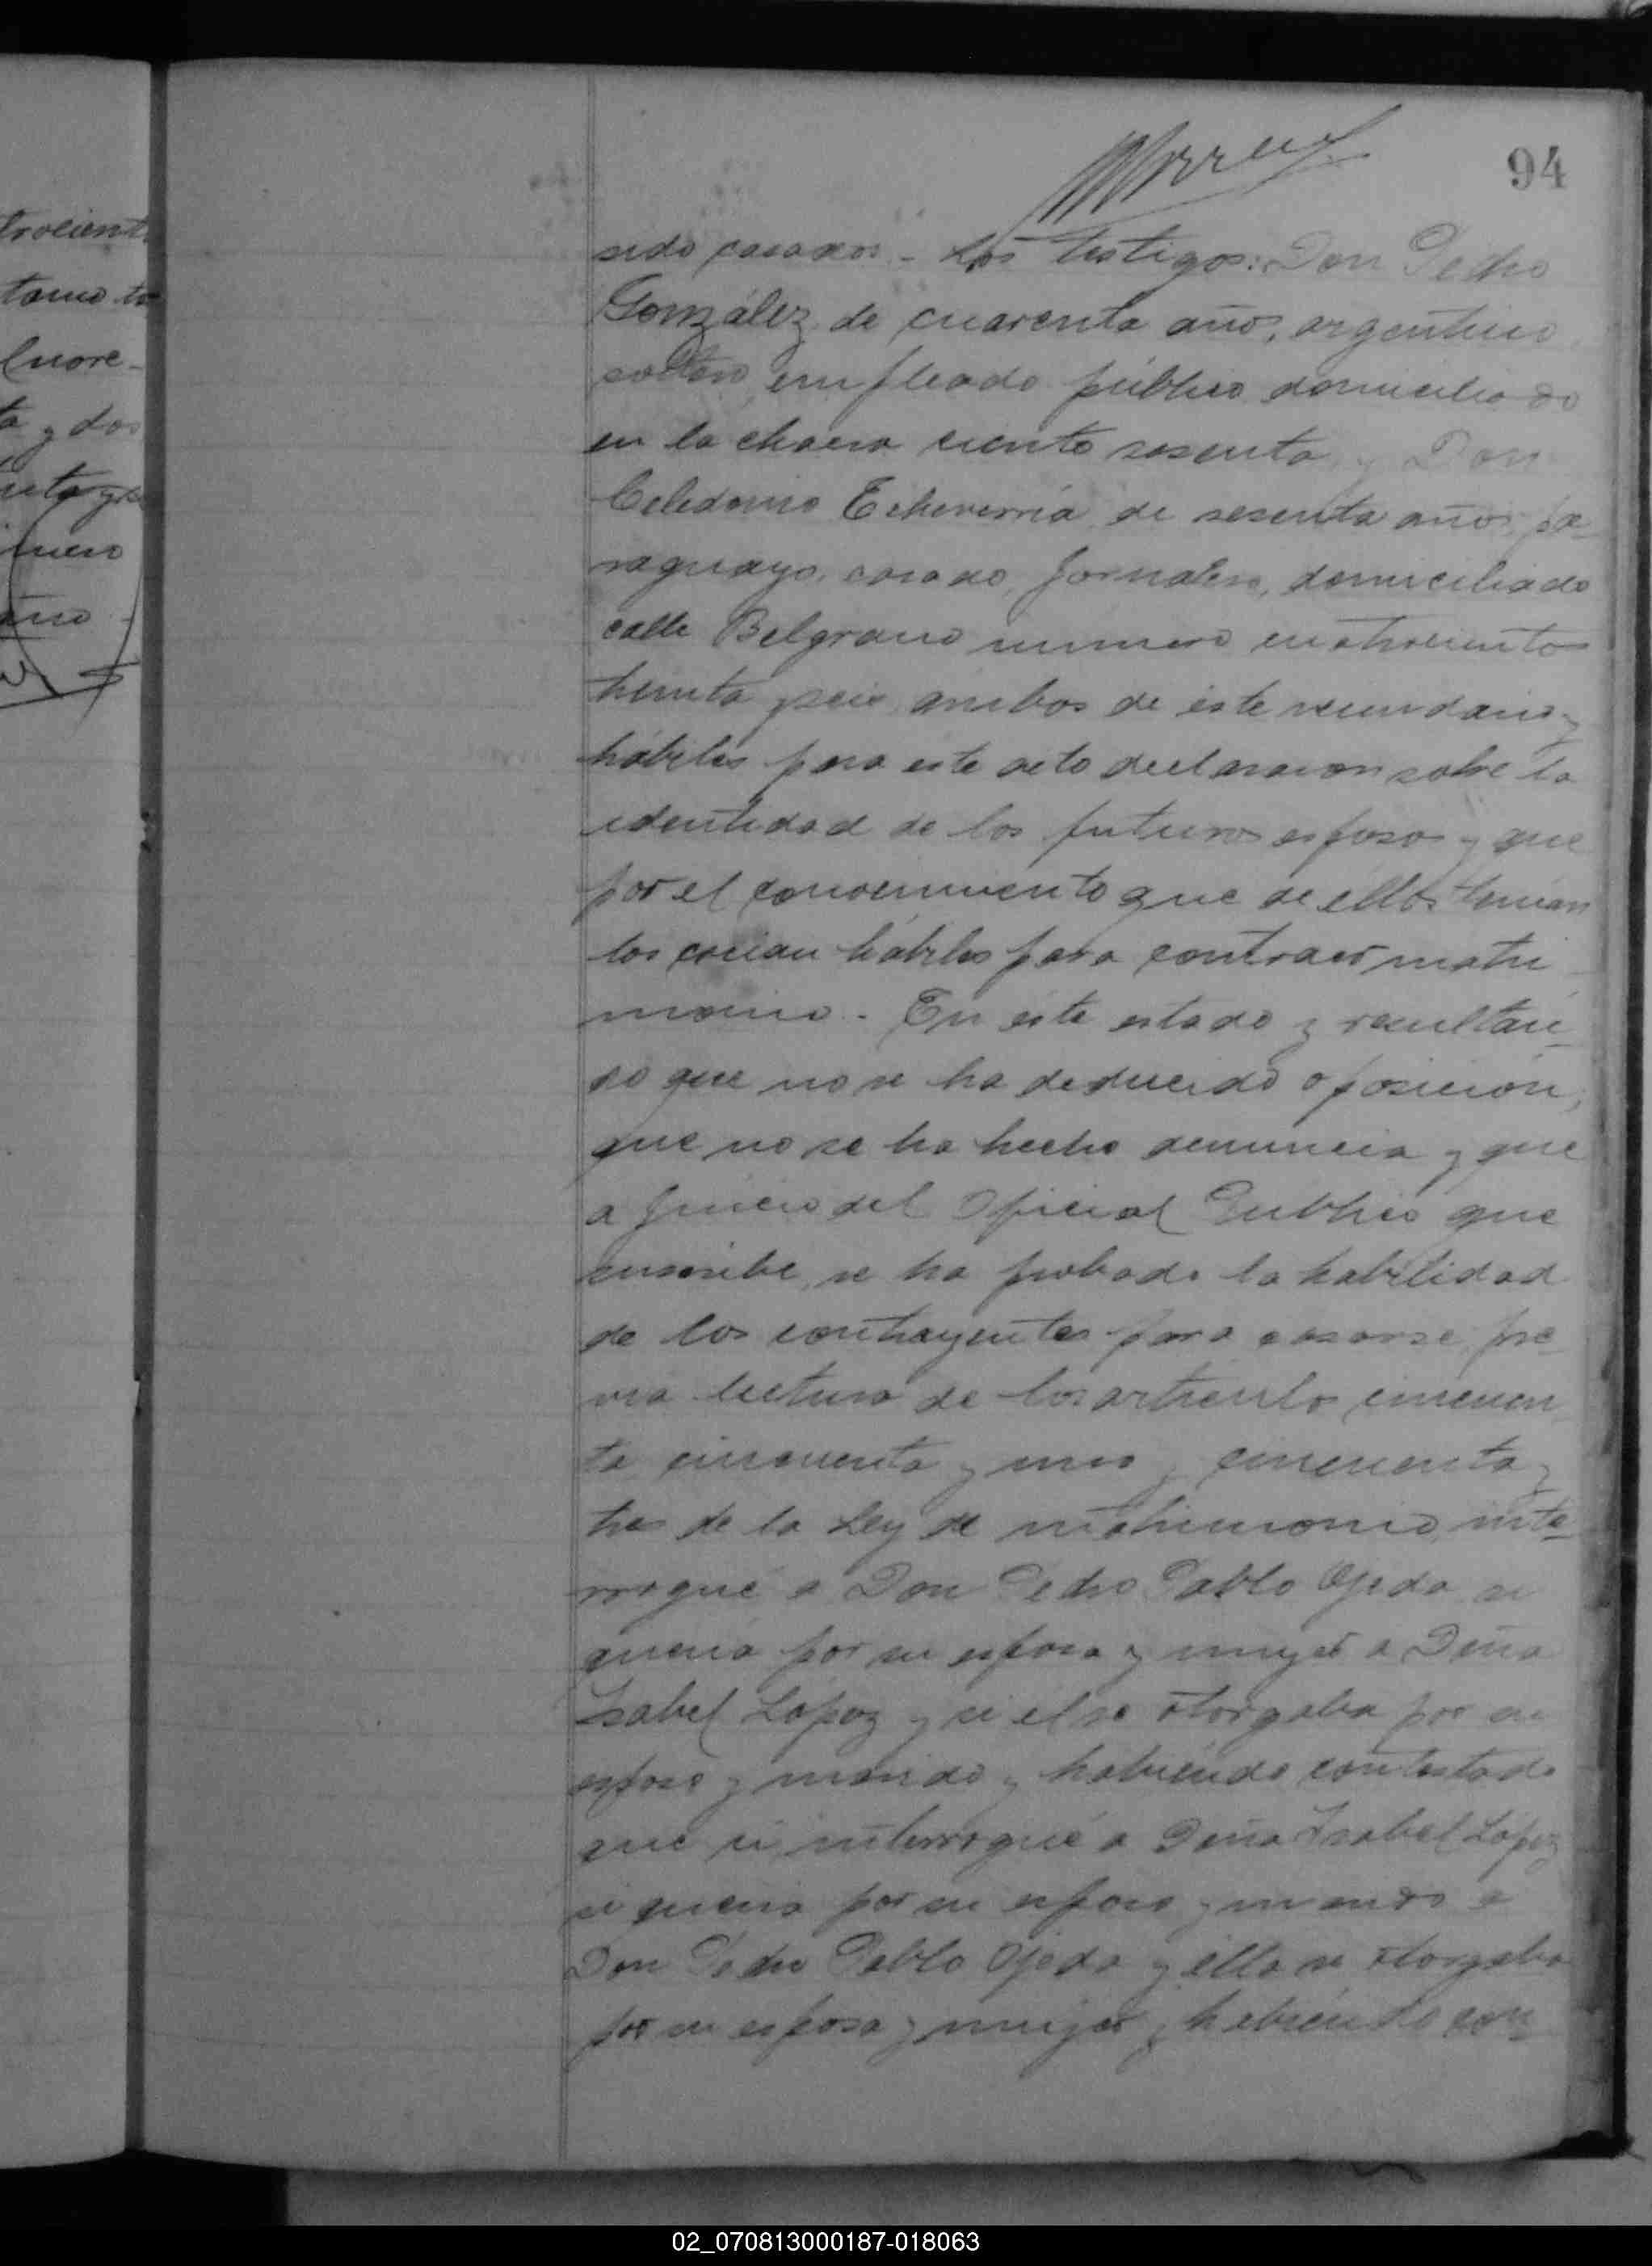 94
sido casados.- Los testigos: Don Pedro
González, de cuarenta años, argentino
soltero empleado público domiciliado
en la chacra ciento sesenta, y Don
Celedonio Echeverría de sesenta años, pa-
raguayo, casado, jornalero, domiciliado
calle Belgrano numero cuatrocientos
treinta y seis, ambos de este vecindario y
hábiles para este acto declararon sobre la
identidad de los futuros esposos y que
por el conocimiento que de ellos tenían
los creían hábiles para contraer matri-
monio.- En este estado y resultan-
do que no se ha deducido oposición,
que no se ha hecho denuncia y que
a juicio del Oficial Publico que
suscribe, se ha probado la habilidad
de los contrayentes para casarse, pre
via lectura de los artículos cincuen
ta cincuenta y uno y cincuenta y
tres de la Ley de matrimonio, inte-
rrogué a Don Pedro Pablo Ojeda si
quería por su esposa y mujer a Doña
Isabel López y si el se otorgaba por su
esposo y marido y habiendo contestado
que si, interrogué a Doña Isabel López
si quería por su esposo y marido a
Don Pedro Pablo Ojeda y ella se otorgaba
por su esposa y mujer y habiendo con-
trocient
cuore-
ta y dos
02_070813000187-018063